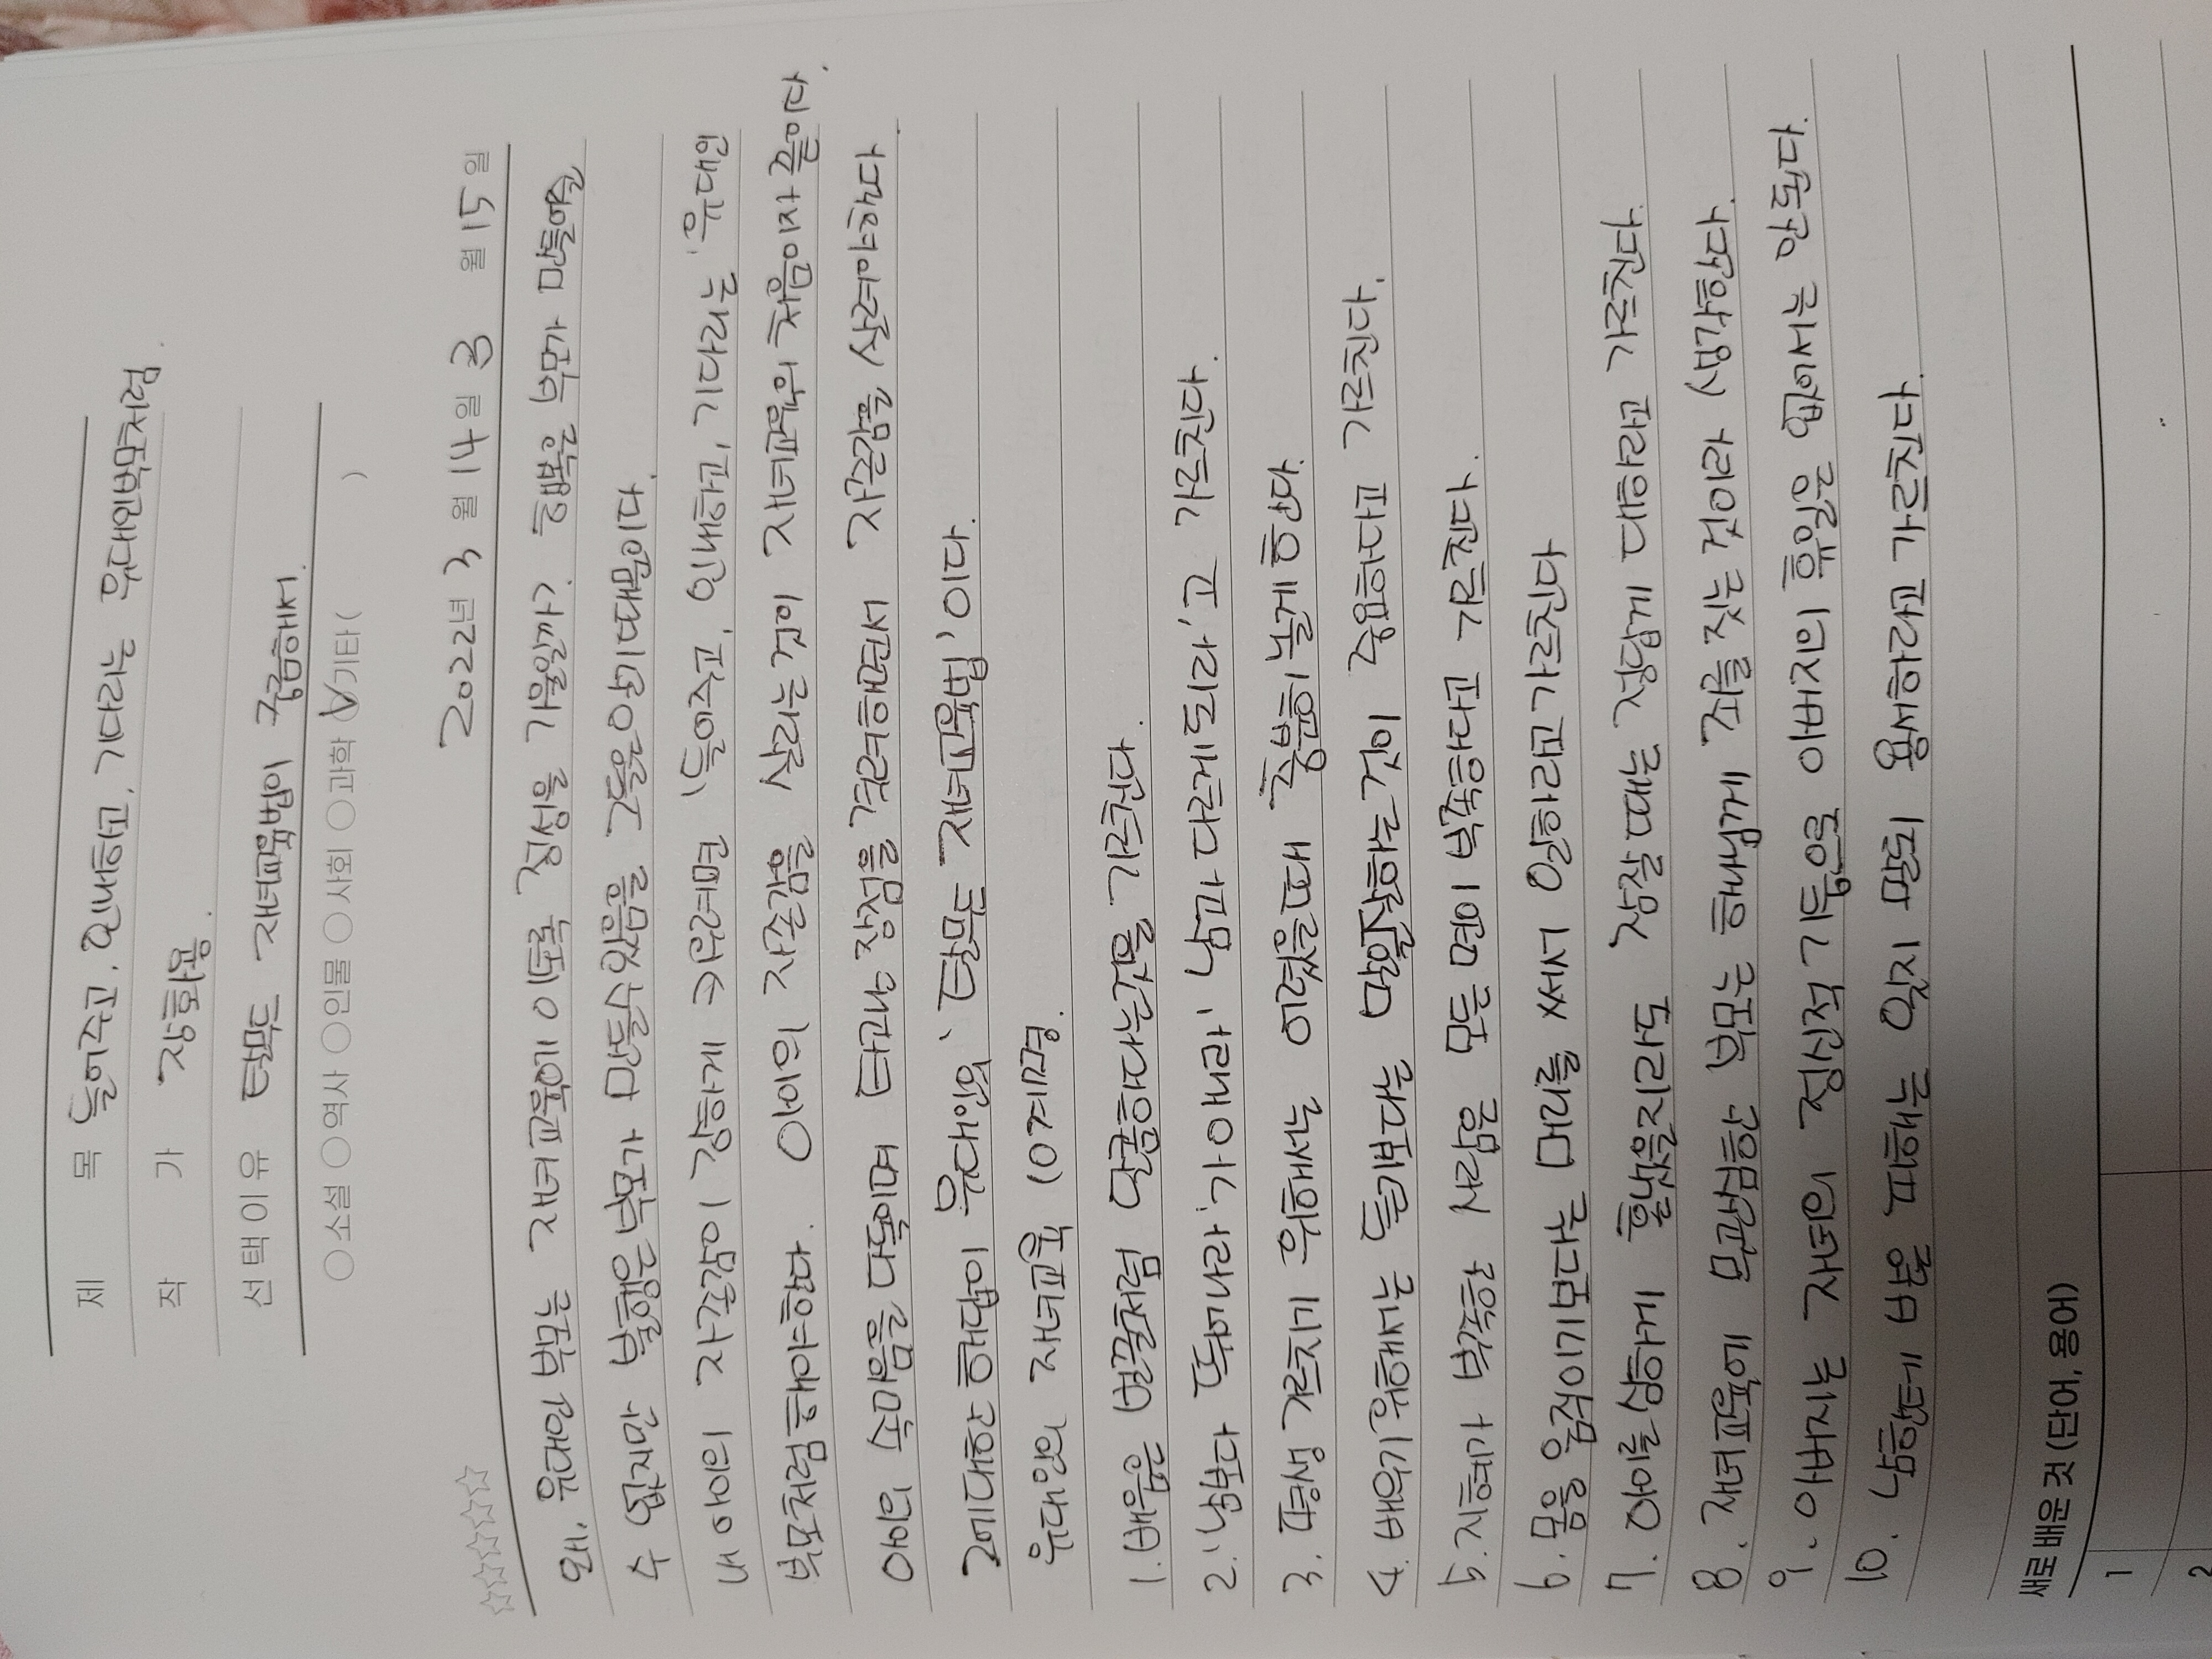 제 목 들어주고, 인내하고, 기다리는 유대인부모처럼.
작 가 장화용.
선택이유 탈무드 자녀교육법이 궁금해서.
○소설 ○역사 ○인물 ○사회 ○과학 ○기타( )
2022년 3 월 14 일 3 월 15 일
왜, 유대인 부모는 자녀교육에 이토록 정성을 기울일까? 행복은 부모가 만들어줄
수 없지만 불행은 부모가 만들수있음을 그들은 알기때문이다.
내 아이의 자존감이 강하게 키우려면 '들어주고, 인내하고, 기다리는' 유대인
부모처럼해야한다. 아이의 자존감을 살리는것이 자녀교육의 처음이자 끝이다.
아이의 속마음을 다독이며 타고난 장점을 격려하면서 자존감을 살려야한다.
그에대한 해답이 유대인의 '탈무드 자녀교육법'이다.
유대인의 자녀교육 10계명.
1. 배움은 벌꿀처럼 달콤하다는것을 가르친다.
2. '남보다 뛰어나라'가 아니라 '남과 다르게되라'고 가르친다.
3. 평생 가르치기 위해서는 어렸을때 충분히 놀게 한다.
4. 배우기위해서는 듣기보다는 말을잘하는것이 중요하다고 가르친다.
5. 지혜가 부족한 사람은 모든면이 부족하다고 가르친다.
6. 몸을 움직이기보다는 머리를 써서 일하라고 가르친다
7. 아이를 심하게 혼냈을지라도 잠잘때는 정답게 대하라고 가르친다.
8. 자녀교육에 무관심한 부모는 하나님께 죄를 짓는 것이라 생각한다.
9. 아버지는 자녀의 정신적 기둥으로 아버지의 휴일은 없어서는 안된다.
10. 남한테 받은 피해는 잊지 말되 용서하라고 가르친다.
새로 배운 것 (단어, 용어)
1
2